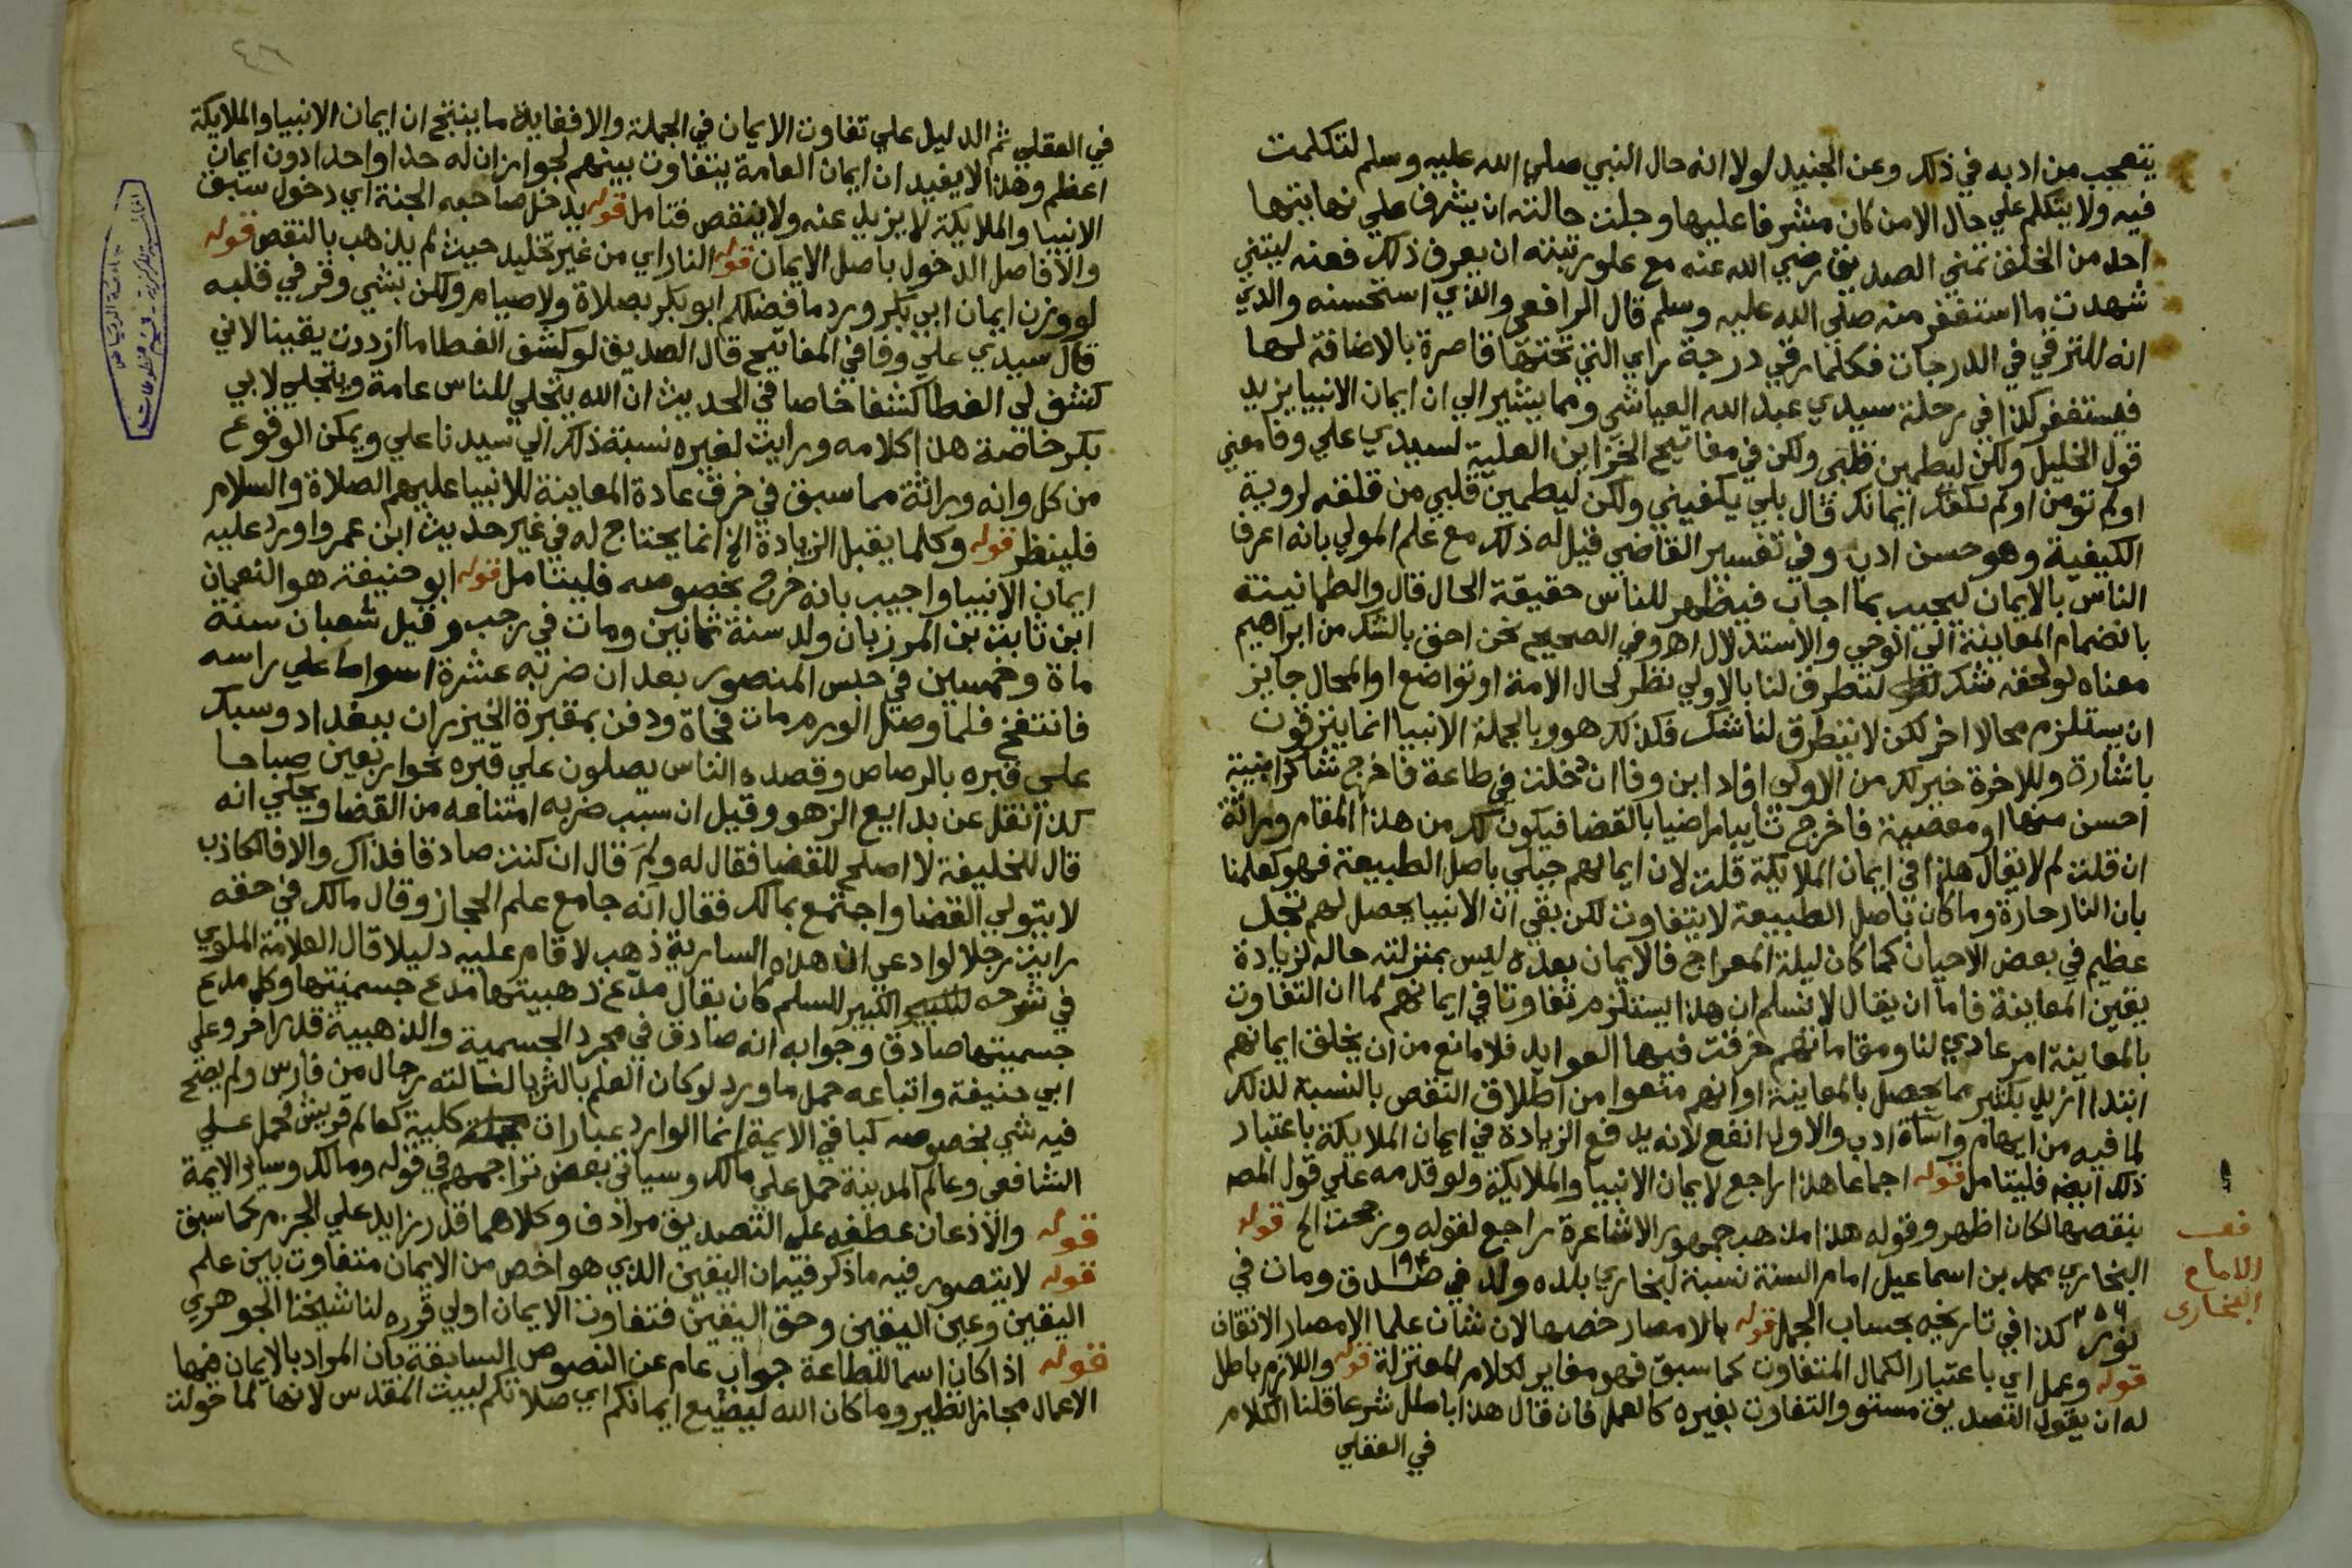 يتعجب من ادبه في ذلك وعن الجنيد لولا انه حال النبي صلي الله عليه وسلم لتكلمت
فيه ولا يتكلم علي حال الا من كان مشرفا عليها وجلت حالته ان يشرف علي نهايتها
احد من الخلق تمني الصديق رضي الله عنه مع علو رتبته ان يعرف ذلك فعنه ليتني
شهدت ما استغفر منه صلي الله عليه وسلم قال الرافعي والذي استحسنه والدي
انه للترقي في الدرجات فكلما رقي درجة راي التي تحتها قاصرة بالاضافة لها
فيستغفر كذا في رحلة سيدي عبد الله العياشي ومما يشير الي ان ايمان الانبيا يزيد
قول الخليل ولكن ليطمين قلبي ولكن في مفاتيح الخزاين العلية لسيدي علي وفا معني
اولم تومن اولم يكفك ايمانك قال بلي يكفيني ولكن ليطمين قلبي من قلقه لروية
الكيفية وهو حسن ادب وفي تفسير القاضي قيل له ذلك مع علم المولي بانه اعرف
الناس بالايمان ليجيب بما اجاب فيظهر للناس حقيقة الحال قال والطمانينة
بانضمام المعاينة الي الوحي والاستدلال اه وفي الصحيح نحن احق بالشك من ابراهيم
معناه لو لحقه شك لتطرق لنا بالاولي نظر لحال الامة او تواضع او المحال جايز
ان يستلزم محالا اخر لكن لا يتطرق لنا شك فكذلك هو وبالجملة الانبيا انما يترقون
باشارة وللاخرة خير لك من الاولي افاد ابن وفا ان دخلت في طاعة فاخرج شاكرا بنية
احسن منها او معصية فاخرج تايبا راضيا بالقضا فيكون لك من هذا المقام وراثة
ان قلت لم لا يقال هذا في ايمان الملايكة قلت لان ايمانهم جبلي باصل الطبيعة فهو كعلمنا
بان النار حارة وما كان باصل الطبيعة لا يتفاوت لكن بقي ان الانبيا يحصل لهم تجل
عظيم في بعض الاحيان كما كان ليلة المعراج فالايمان بعده ليس بمنزلته حاله لزيادة
يقين المعاينة فاما ان يقال لا نسلم ان هذا يستلزم تفاوتا في ايمانهم كما ان التفاوت
بالمعاينة امر عادي لنا ومقاماتهم خرقت فيها العوايد فلا مانع من ان يخلق ايمانهم
ابتدا ازيد بكثير مما يحصل بالمعاينة او انهم منعوا من اطلاق النقص بالنسبة لذلك
لما فيه من ايهام واساة ادب والاول انفع لانه يدفع الزيادة في ايمان الملايكة باعتبار
ذلك ايضه فليتامل قوله اجماعا هذا راجع لايمان الانبيا والملايكة ولو قدمه علي قول المصه
بنقصها لكان اظهر وقوله هذا مذهب جمهور الاشاعرة راجع لقوله ورجحت الخ قوله
البخاري محمد بن اسماعيل امام السنة نسبة لبخاري بلده ولد في صدق ١٩٤ ومات في
نور ٢٥٦ كذا في تاريخه بحساب الجمل قوله بالامصار خصها لان شان علما الامصار الاتقان
قوله وعمل اي باعتبار الكمال المتفاوت كما سبق فهو مغاير لكلام المعتزلة قوله واللازم باطل
له ان يقول التصديق مستو والتفاوت بغيره كالعمل فان قال هذا باطل شرعا قلنا الكلام
في العقلي
قف
الامام
البخاري
٤٦
في العقلي ثم الدليل علي تفاوت الايمان في الجملة والا فغاية ما ينتج ان ايمان الانبيا والملايكة
اعظم وهذا لا يفيد ان ايمان العامة يتفاوت بينهم لجواز ان له حدا واحدا دون ايمان
الانبيا والملايكة لا يزيد عنه ولا ينقص فتامل قوله يدخل صاحبه الجنة اي دخول سبق
والا فاصل الدخول باصل الايمان قوله النار اي من غير تخليد حيث لم يذهب بالنقص قوله
لو وزن ايمان ابي بكر ورد ما فضلكم ابو بكر بصلاة ولا صيام ولكن بشي وقر في قلبه
قال سيدي علي وفا في المفاتيح قال الصديق لو كشف الغطا ما ازددت يقينا لاني
كشف لي الغطا كشفا خاصا في الحديث ان الله يتجلي للناس عامة ويتجلي لابي
بكر خاصة هذا كلامه ورايت لغيره نسبة ذلك الي سيدنا علي ويمكن الوقوع
من كل وانه وراثة مما سبق في خرق عادة المعاينة للانبيا عليهم الصلاة والسلام
فلينظر قوله وكلما يقبل الزيادة الخ انما يحتاج له في غير حديث ابن عمر واورد عليه
ايمان الانبيا واجيب بانه خرج بخصوصه فليتامل قوله ابو حنيفة هو النعمان
ابن ثابت بن المرزبان ولد سنة ثمانين ومات في رجب وقيل شعبان سنة
ماة وخمسين في حبس المنصور بعد ان ضربه عشرة اسواط علي راسه
فانتفخ فلما وصل الورم مات فجاة ودفن بمقبرة الخيزران ببغداد وسبك
علي قبره بالرصاص وقصده الناس يصلون علي قبره نحو اربعين صباحا
كذا نقل عن بدايع الزهور وقيل ان سبب ضربه امتناعه من القضا ويحكي انه
قال للخليفة لا اصلح للقضا فقال له ولم قال ان كنت صادقا فذاك والا فالكاذب
لا يتولي القضا واجتمع بمالك فقال انه جامع علم الحجاز وقال مالك في حقه
رايت رجلا لو ادعي ان هذه السارية ذهب لاقام عليه دليلا قال العلامة الملوي
في شرحه الكبير للسلم كان يقال مدع ذهبيتها مدع جسميتها وكل مدع
جسميتها صادق وجوابه انه صادق في مجرد الجسمية والذهبية قدر اخر وعلي
ابي حنيفة واتباعه حمل ما ورد لو كان العلم بالثريا لناله رجال من فارس ولم يصح
فيه شي بخصوصه كباقي الايمة انما الوارد عبارات كلية كعالم قريش حمل علي
الشافعي وعالم المدينة حمل علي مالك وسياتي بعض تراجمهم في قوله ومالك وساير الايمة
قوله والاذعان عطفه علي التصديق مرادف وكلاهما قدر زايد علي الجزم كما سبق
قوله لا يتصور فيه ما ذكر فيه ان اليقين الذي هو اخص من الايمان متفاوت بين علم
اليقين وعين اليقين وحق اليقين فتفاوت الايمان اولي قرره لنا شيخنا الجوهري
قوله اذا كان اسما للطاعة جواب عام عن النصوص السابقة بان المراد بالايمان فيها
الاعمال مجازا نظير وما كان الله ليضيع ايمانكم اي صلاتكم لبيت المقدس لانها لما حولت